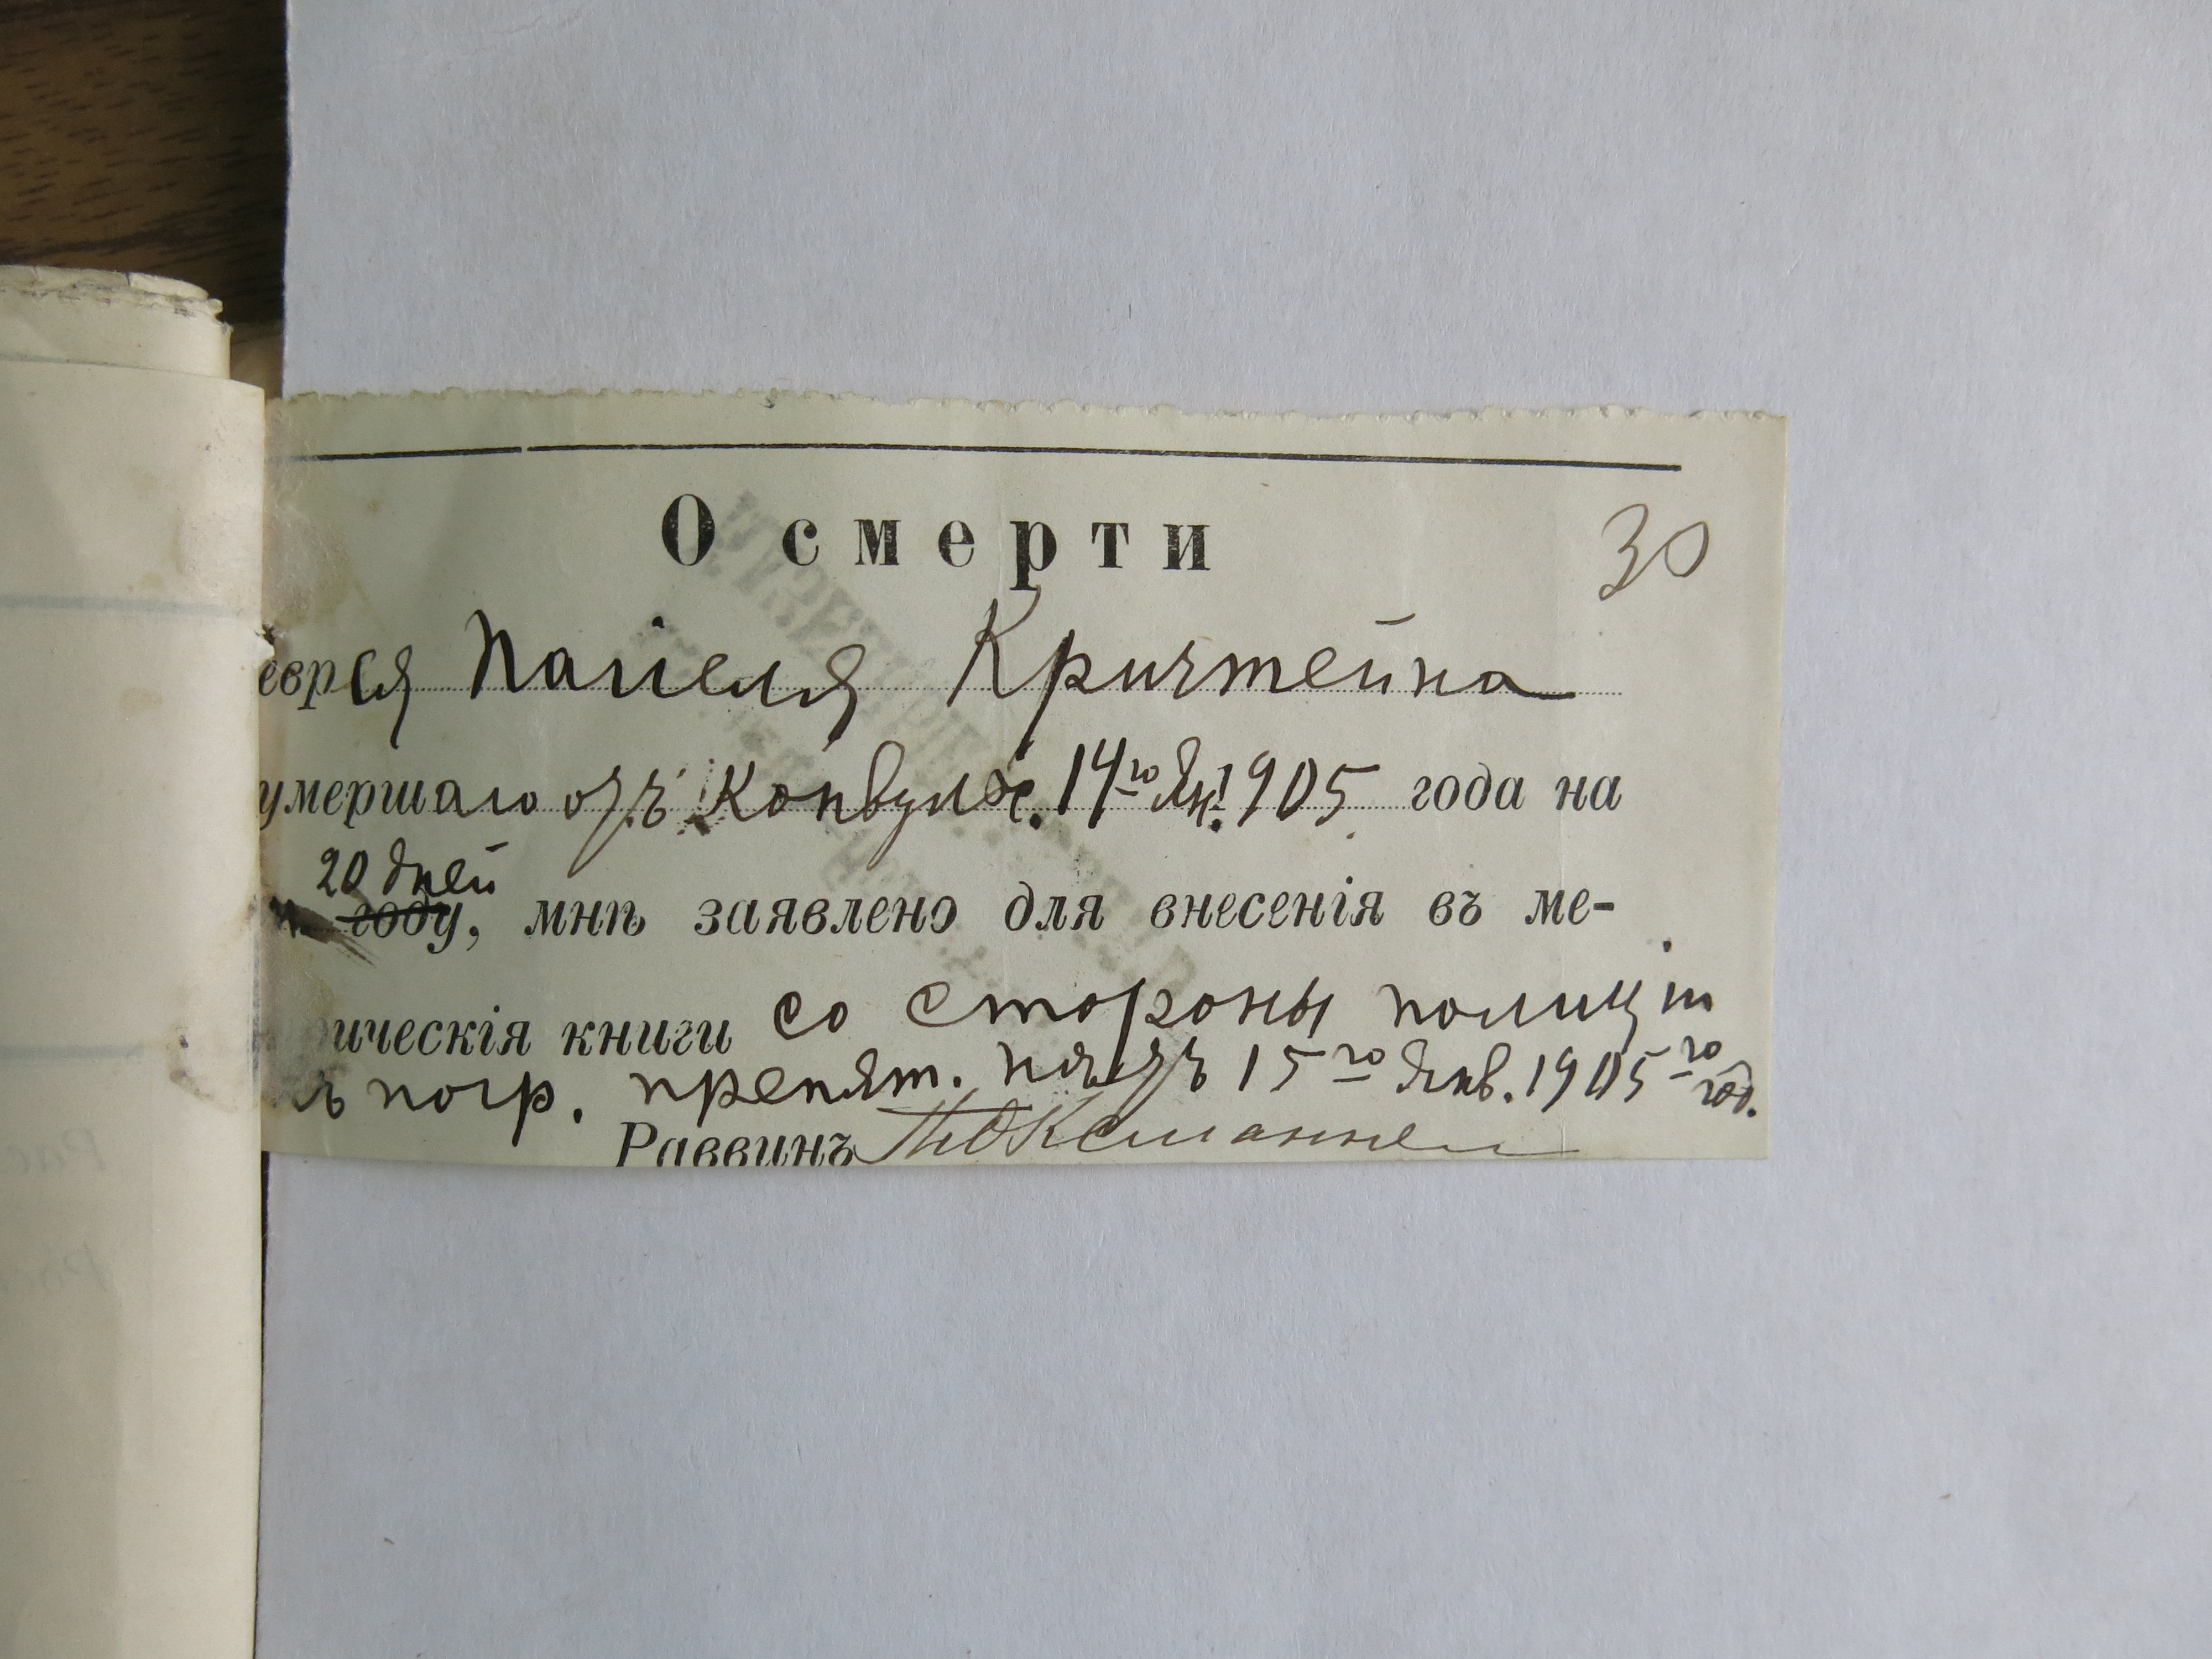 О смерти
30
еврея Папіеля Криштейна
умершаго отъ Конвульс. 14го Янв. 1905 года на
20 дней
году, мнѣ заявлено для внесенія въ ме-
рическія книги со стороны полиціи
къ погр. препят. нѣтъ 15го Янв. 1905го год.
Раввинъ